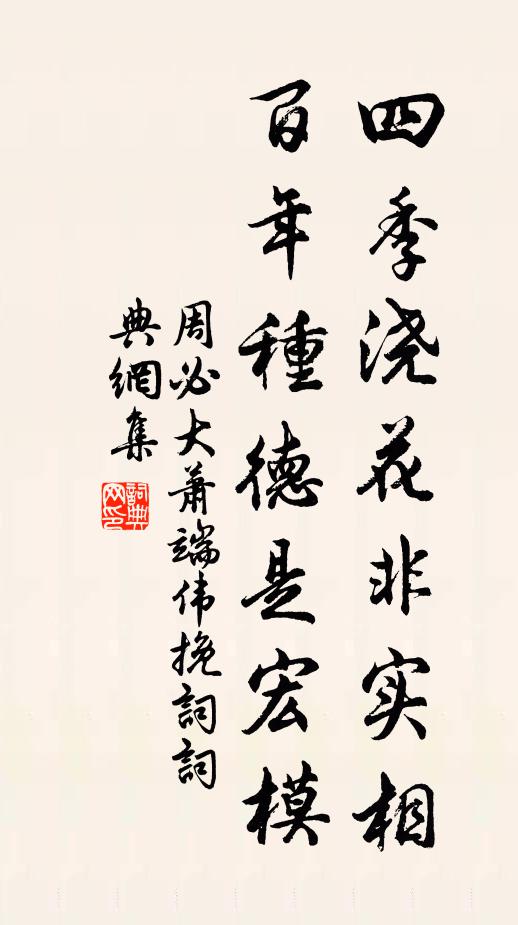 四季浇花非实相
百年種德是宏模
周必大萧端伟挽詞詞
典網集
詞典网印